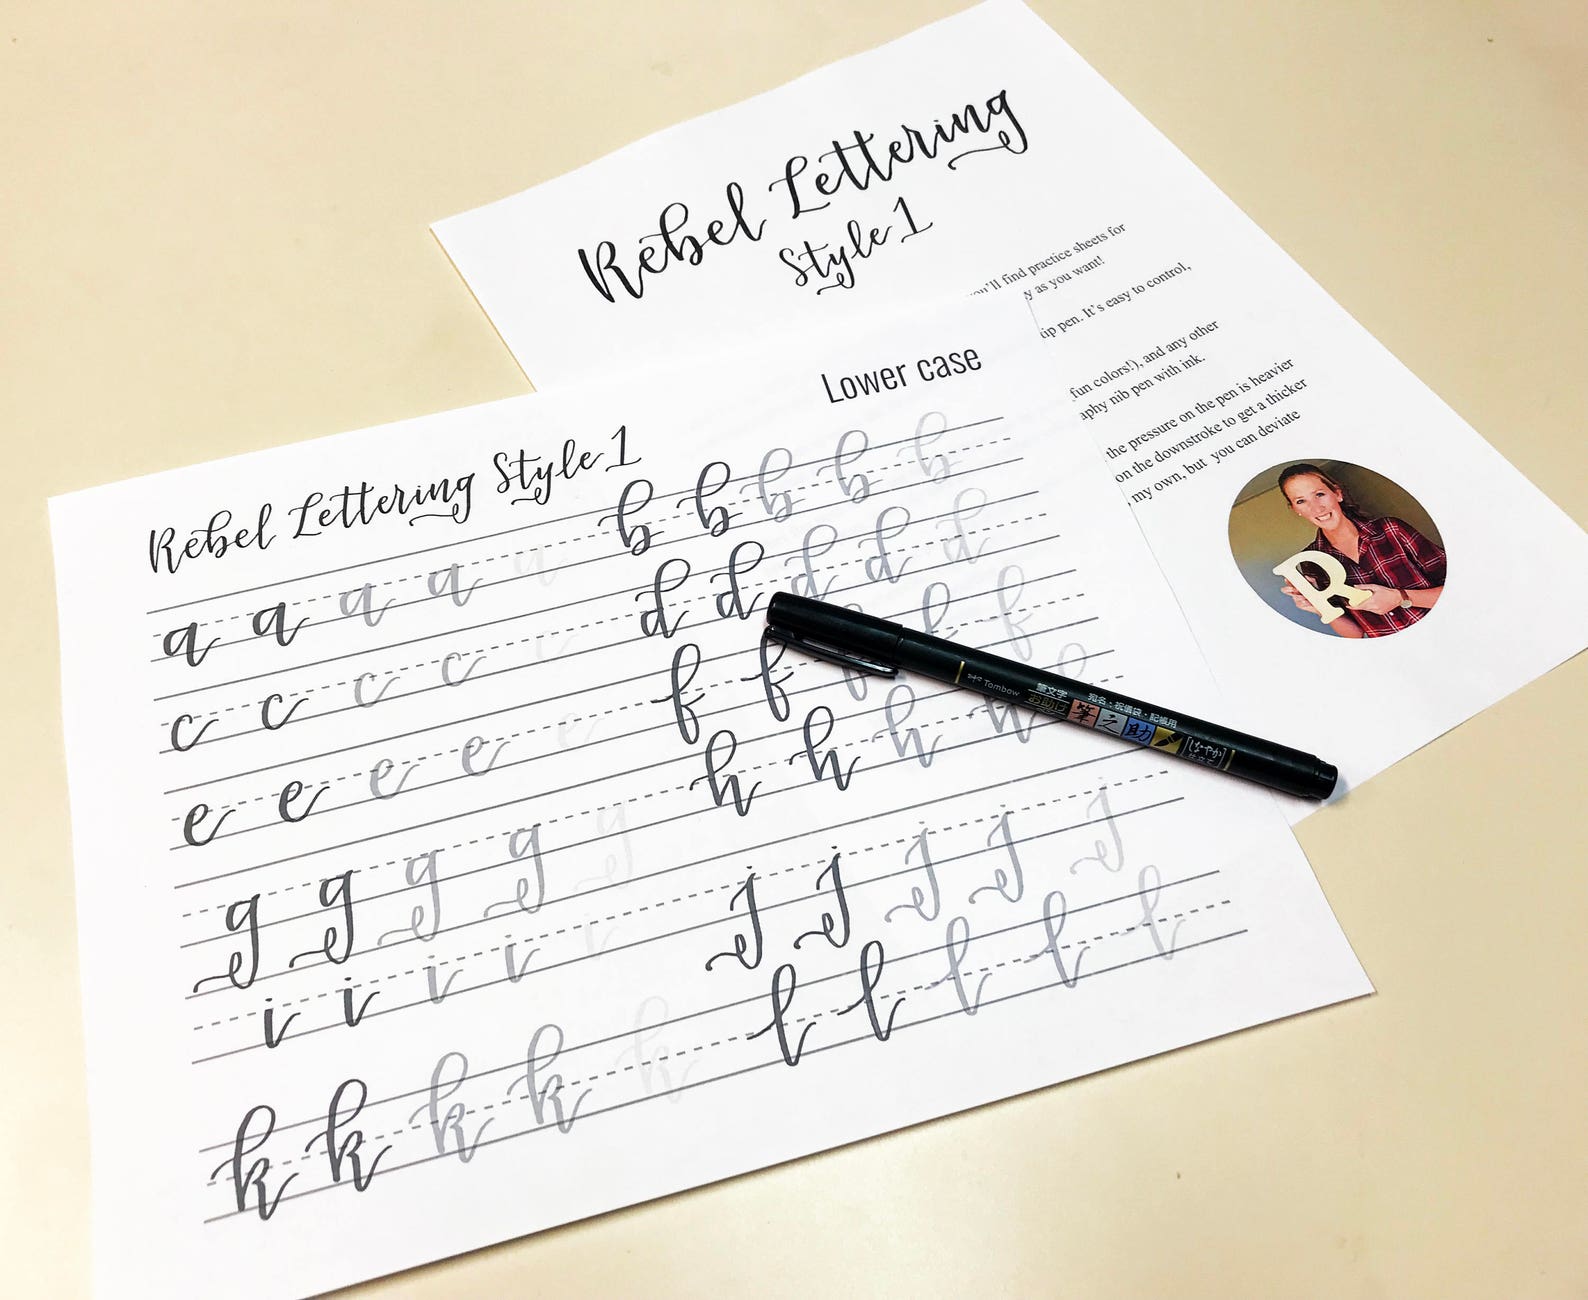 Rebel Lettering
Style 1
you'll find practice sheets for
as you want!
tip pen. It's easy to control,
fun colors!), and any other
nib pen with ink.
the pressure on the pen is heavier
on the downstroke to get a thicker
my own, but you can deviate
R
Lower case
Rebel Lettering Style 1
a a a a a b b b b b
c c c c c d d d d d
e e e e e f f f f f
g g g g g h h h h h
i i i i i j j j j j
k k k k k l l l l l
Tombow
筆文字 宛名・祝儀袋・記帳用
お助け 筆之助 しなやか
仕立て